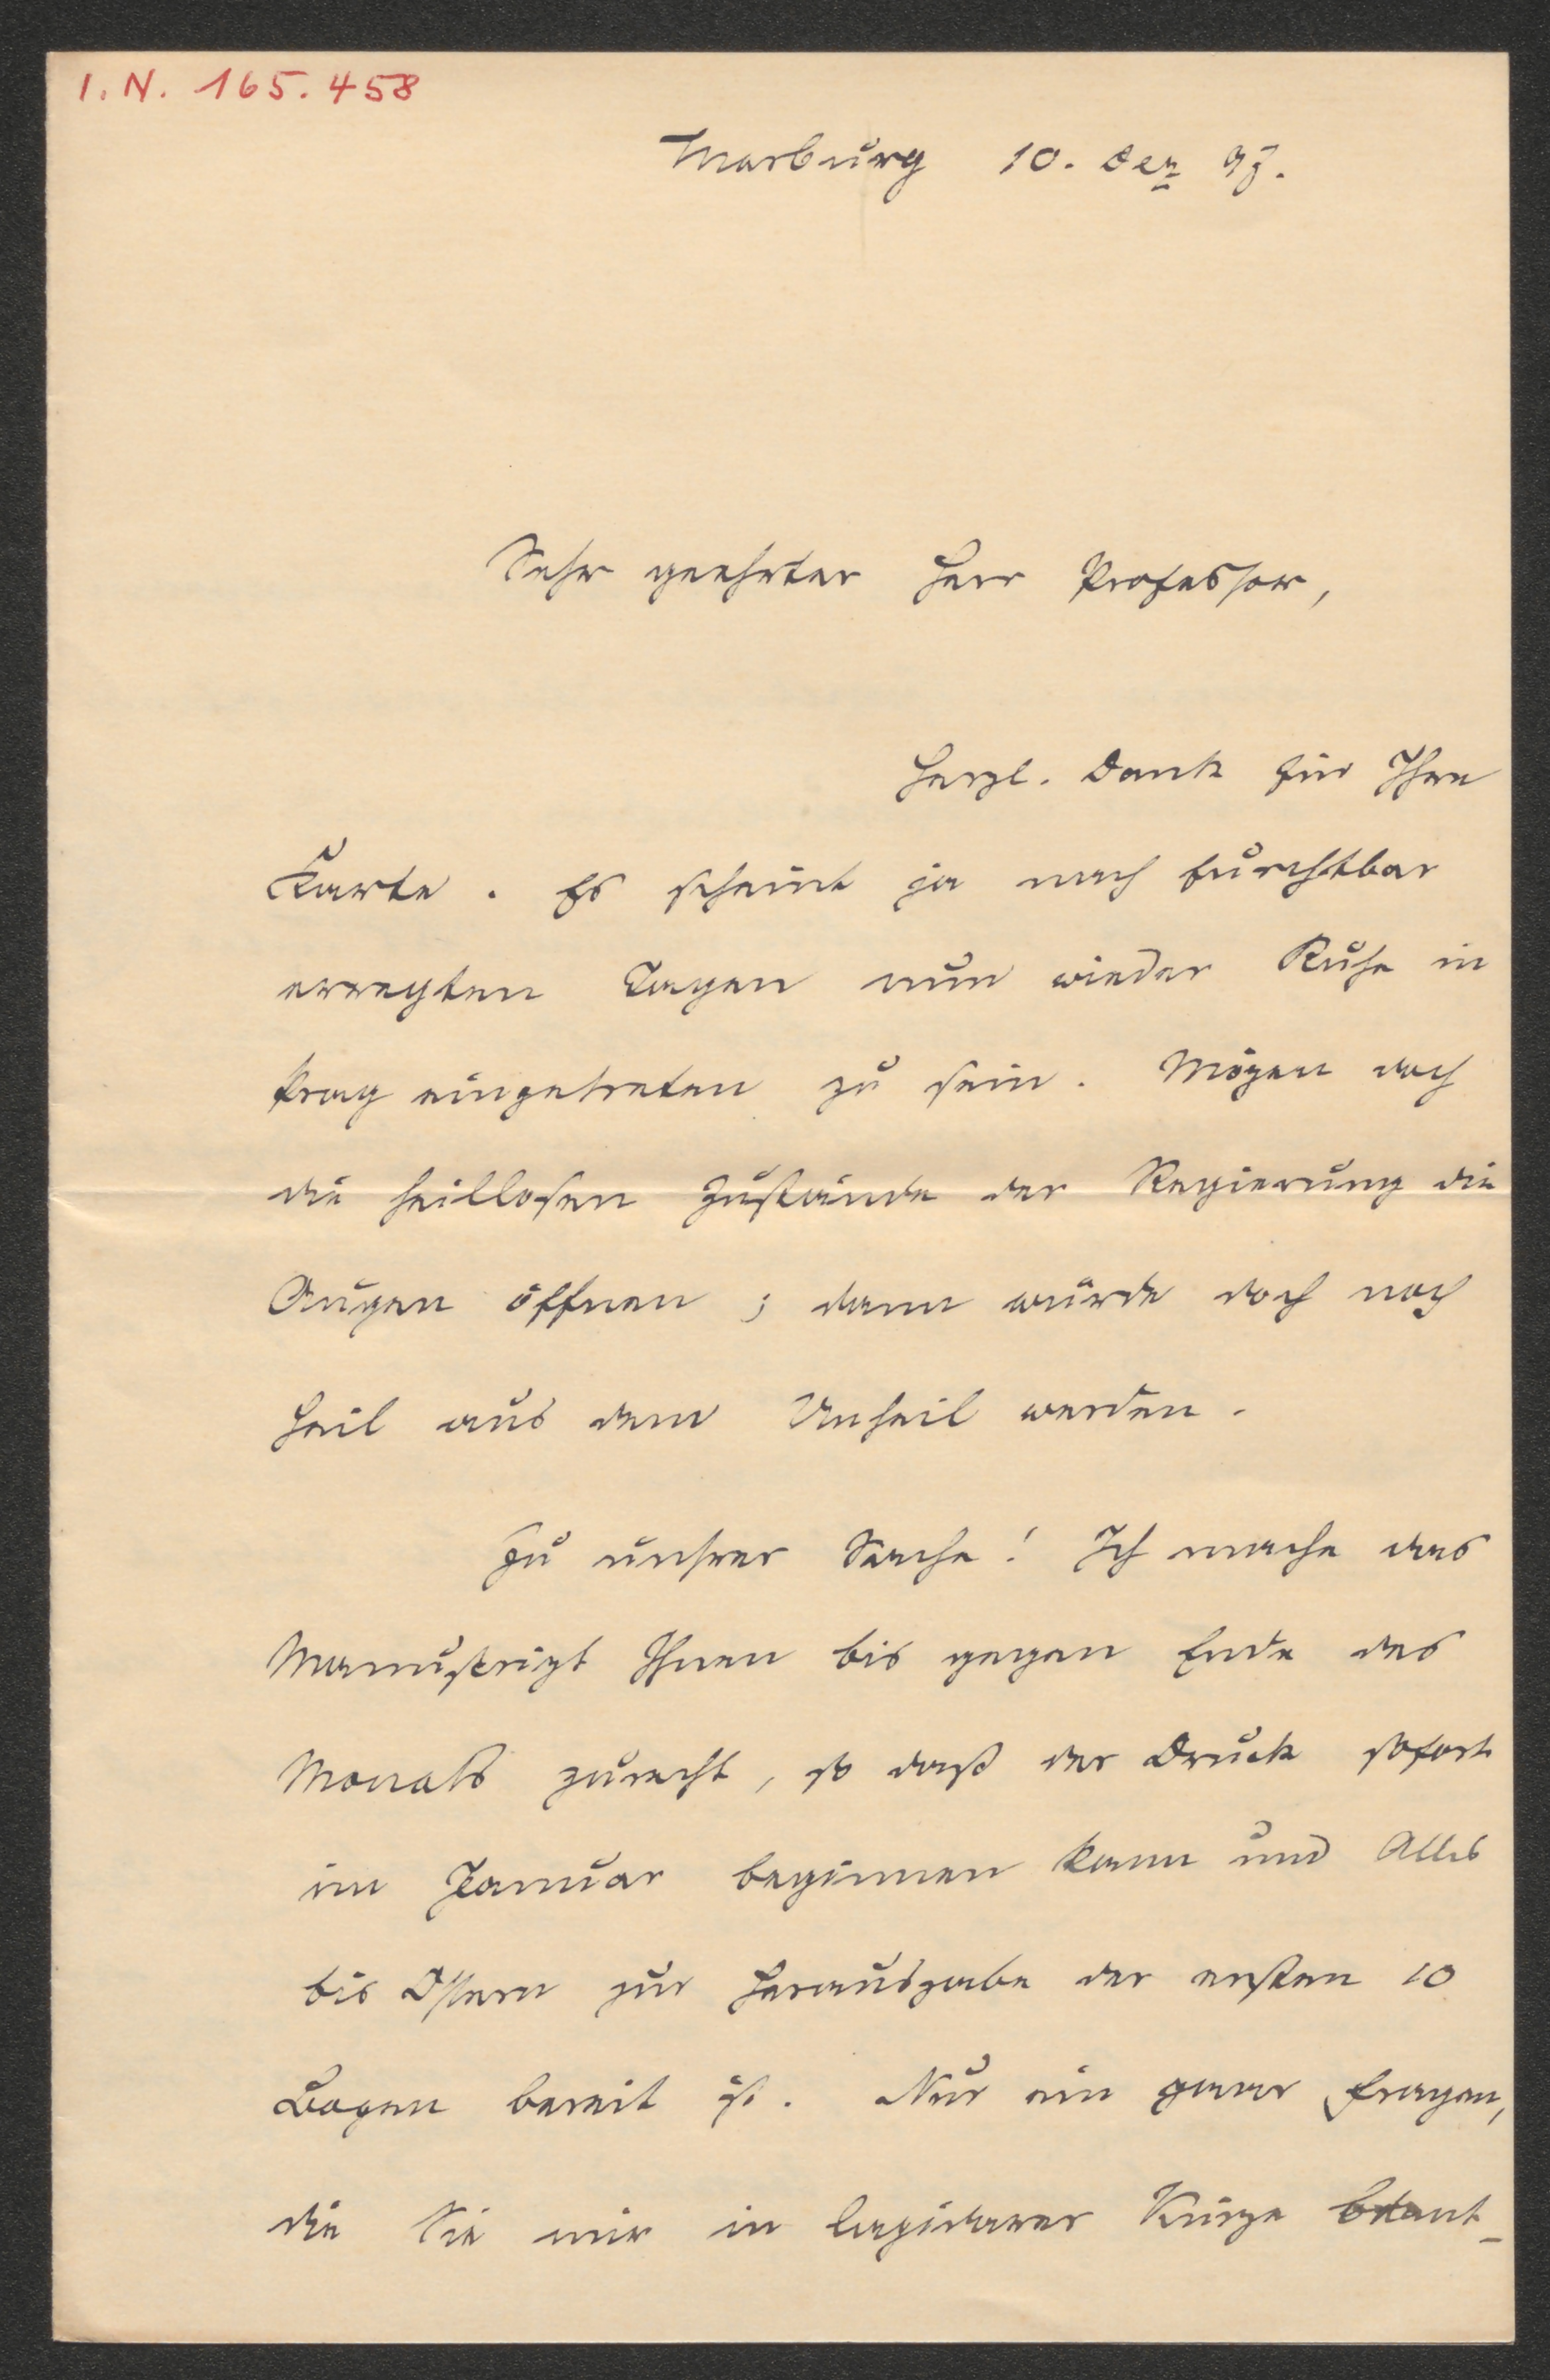 I. N. 165.458
Marburg 10. Dez 97.
Sehr geehrter Herr Professor,
Herzl. Dank für Ihre
Karte. Es scheint ja nach furchtbar
erregten Tagen nun wieder Ruhe in
Prag eingetreten zu sein. Mögen doch
die heillosen Zustände der Regierung die
Augen öffnen; dann würde doch noch
Heil aus dem Unheil werden.
Zu unsrer Sache! Ich mache das
Manuskript Ihnen bis gegen Ende des
Monats zurecht, so daß der Druck sofort
im Januar beginnen kann und Alles
bis Ostern zur Herausgabe der ersten 10
Bogen bereit ist. Nur ein paar Fragen,
die Sie mir in lapidarer Kürze beant-